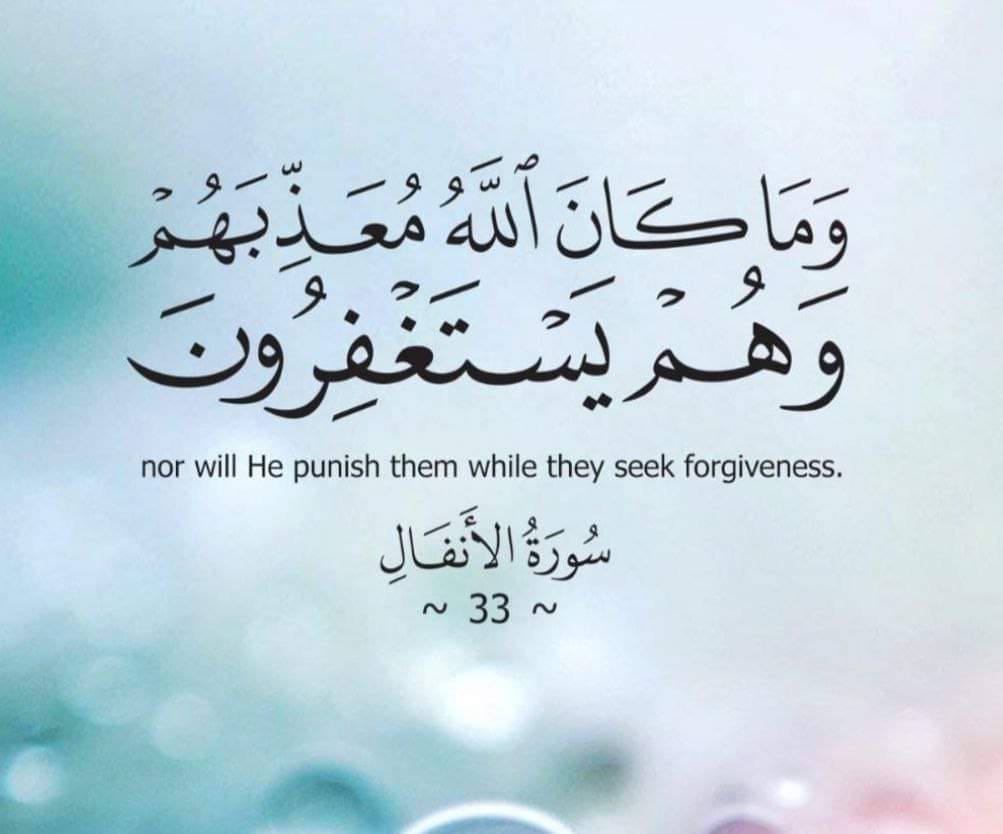 وَمَا كَانَ ٱللَّهُ مُعَذِّبَهُمۡ
وَهُمۡ يَسۡتَغۡفِرُونَ
nor will He punish them while they seek forgiveness.
سُورَةُ الأَنفَالِ
~ 33 ~